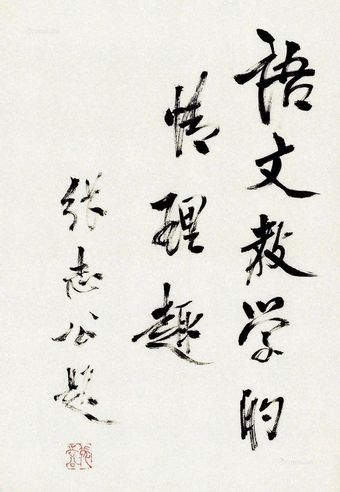 语文教学的
情理趣
张志公题